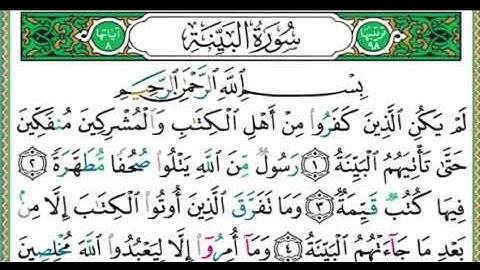 ترتيبها ٩٨ سُورَةُ الْبَيِّنَةِ آياتها ٨
بِسْمِ اللَّهِ الرَّحْمَٰنِ الرَّحِيمِ
لَمْ يَكُنِ الَّذِينَ كَفَرُوا مِنْ أَهْلِ الْكِتَابِ وَالْمُشْرِكِينَ مُنفَكِّينَ
حَتَّىٰ تَأْتِيَهُمُ الْبَيِّنَةُ ١ رَسُولٌ مِّنَ اللَّهِ يَتْلُوا صُحُفًا مُّطَهَّرَةً ٢
فِيهَا كُتُبٌ قَيِّمَةٌ ٣ وَمَا تَفَرَّقَ الَّذِينَ أُوتُوا الْكِتَابَ إِلَّا مِنْ
بَعْدِ مَا جَاءَتْهُمُ الْبَيِّنَةُ ٤ وَمَا أُمِرُوا إِلَّا لِيَعْبُدُوا اللَّهَ مُخْلِصِينَ